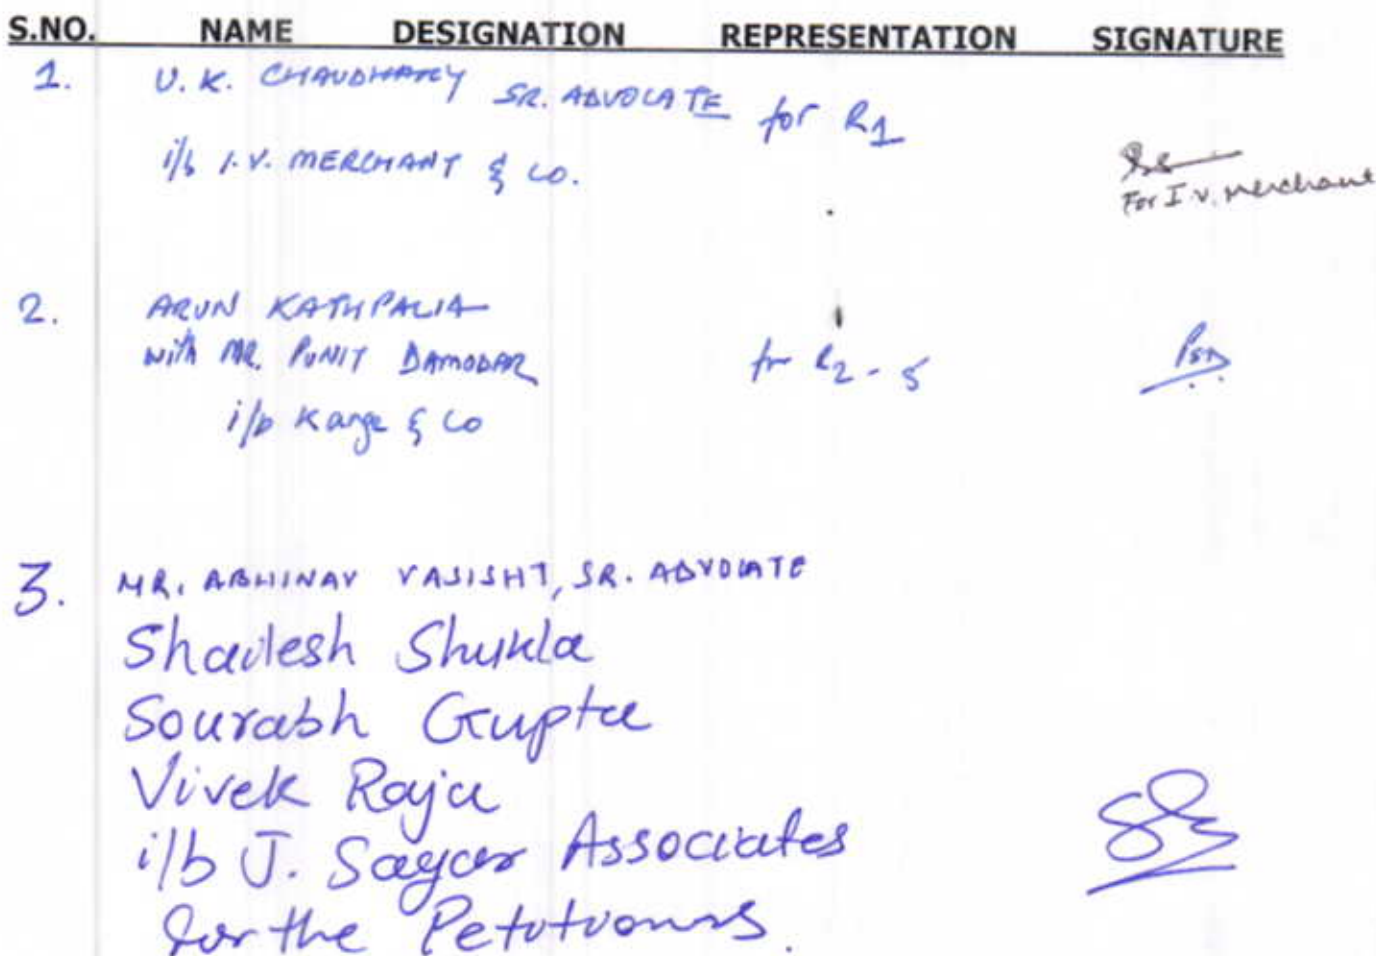 S.NO. NAME DESIGNATION REPRESENTATION SIGNATURE
1. U.K. CHAUDHARY SR. ADVOCATE for R1
i/b I.V. MERCHANT & CO.
For I.V. Merchant
2. ARUN KATHPALIA
with MR. PUNIT DAMODAR for R2-5
i/b Kange & Co
3. MR. ABHINAV VASISHT, SR. ADVOCATE
Shailesh Shukla
Sourabh Gupta
Vivek Raja
i/b J. Sagar Associates
for the Petitioners.